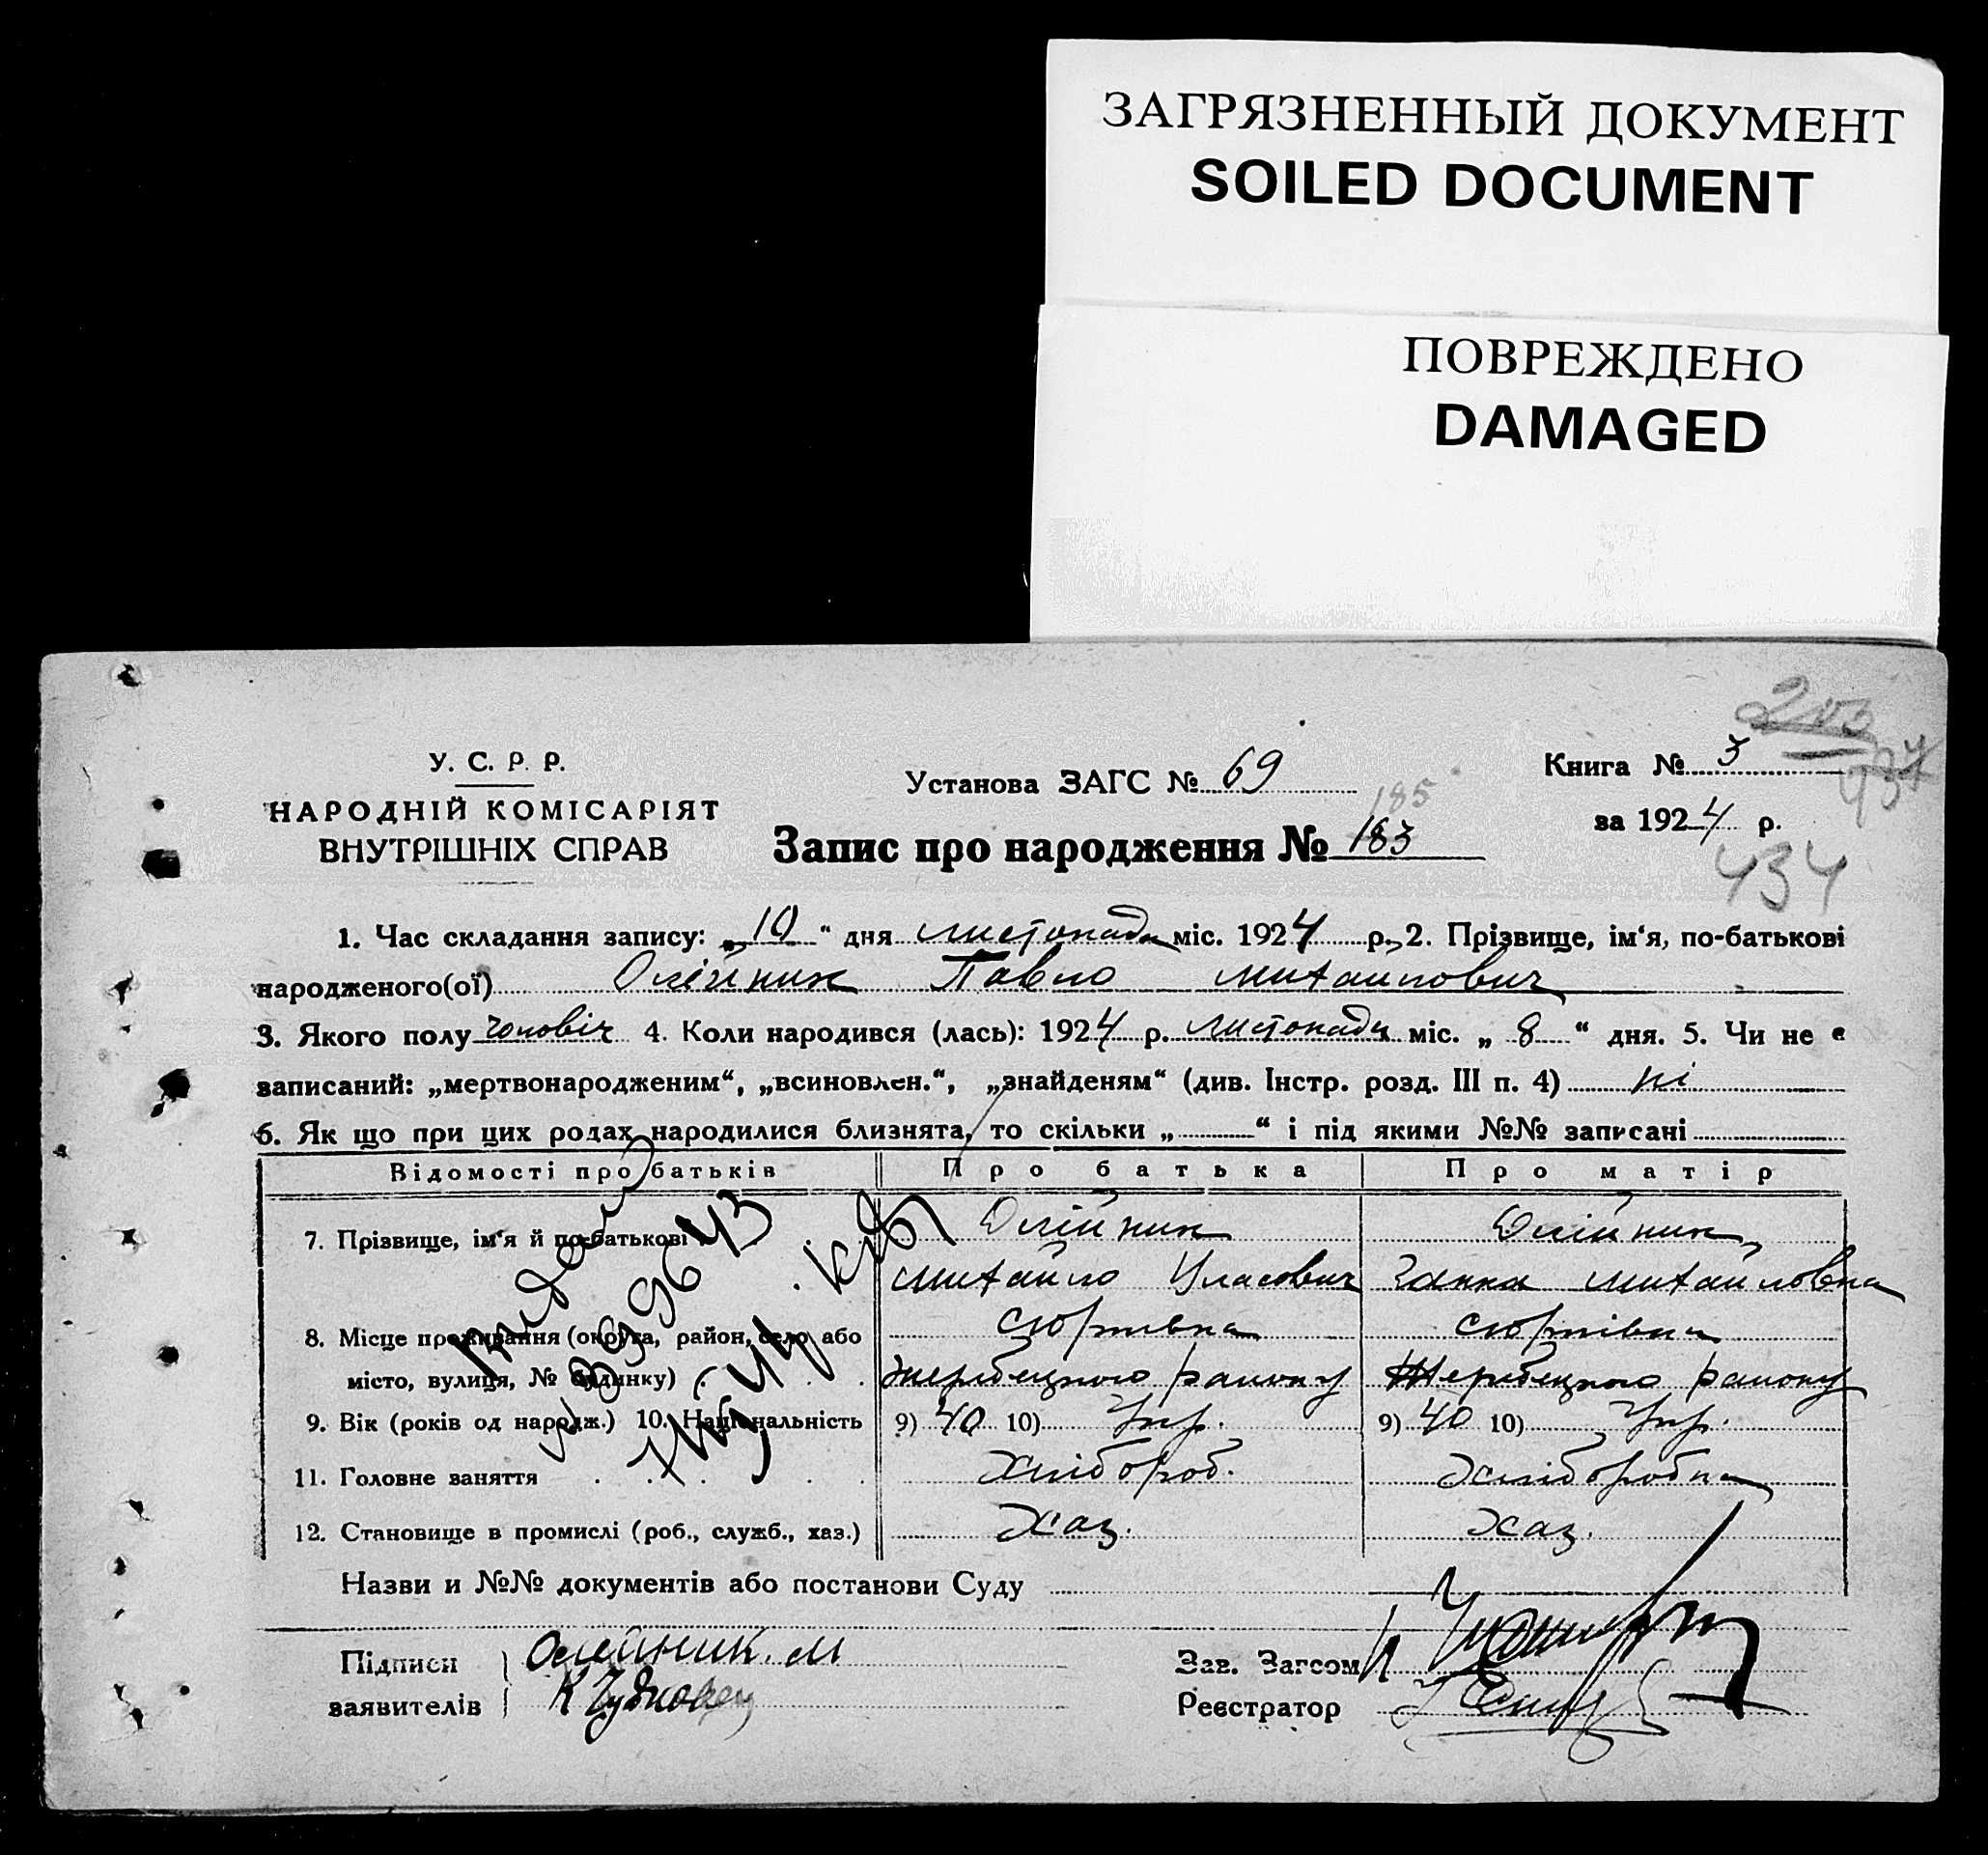 ЗАГРЯЗНЕННЫЙ ДОКУМЕНТ
SOILED DOCUMENT
ПОВРЕЖДЕНО
DAMAGED
203
437
У. С. Р. Р.
НАРОДНІЙ КОМІСАРІЯТ
ВНУТРІШНІХ СПРАВ
Установа ЗАГС № 69
185
Запис про народження № 183
Книга № 3
за 1924 р.
434
1. Час складання запису: „10“ дня листопада міс. 1924 р. 2. Прізвище, ім‘я, по-батькові
народженого(ої) Олійник Павло Михайлович
3. Якого полу чоловіч 4. Коли народився (лась): 1924 р. листопада міс. „8“ дня. 5. Чи не є
записаний: „мертвонародженим“, „всиновлен.“, „знайденям“ (див. Інстр. розд. III п. 4) ні
6. Як що при цих родах народилися близнята, то скільки „ “ і під якими №№ записані
Відомості про батьків Про батька Про матір
7. Прізвище, ім‘я й по-батькові Олійник Олійник
Михайло Уласович Ганна Михайловна
8. Місце проживання (округа, район, село або
місто, вулиця, № будинку) Жеребецького району Жеребецького району
9. Вік (років од народж.) 10. Національність 9) 40 10) Укр. 9) 40 10) Укр.
11. Головне заняття Хлібороб. Хліборобка
12. Становище в промислі (роб., служб., хаз.) Хаз. Хаз.
Назви и №№ документів або постанови Суду
Підписи Олейник. М
заявителів
Зав. Загсом
Реєстратор